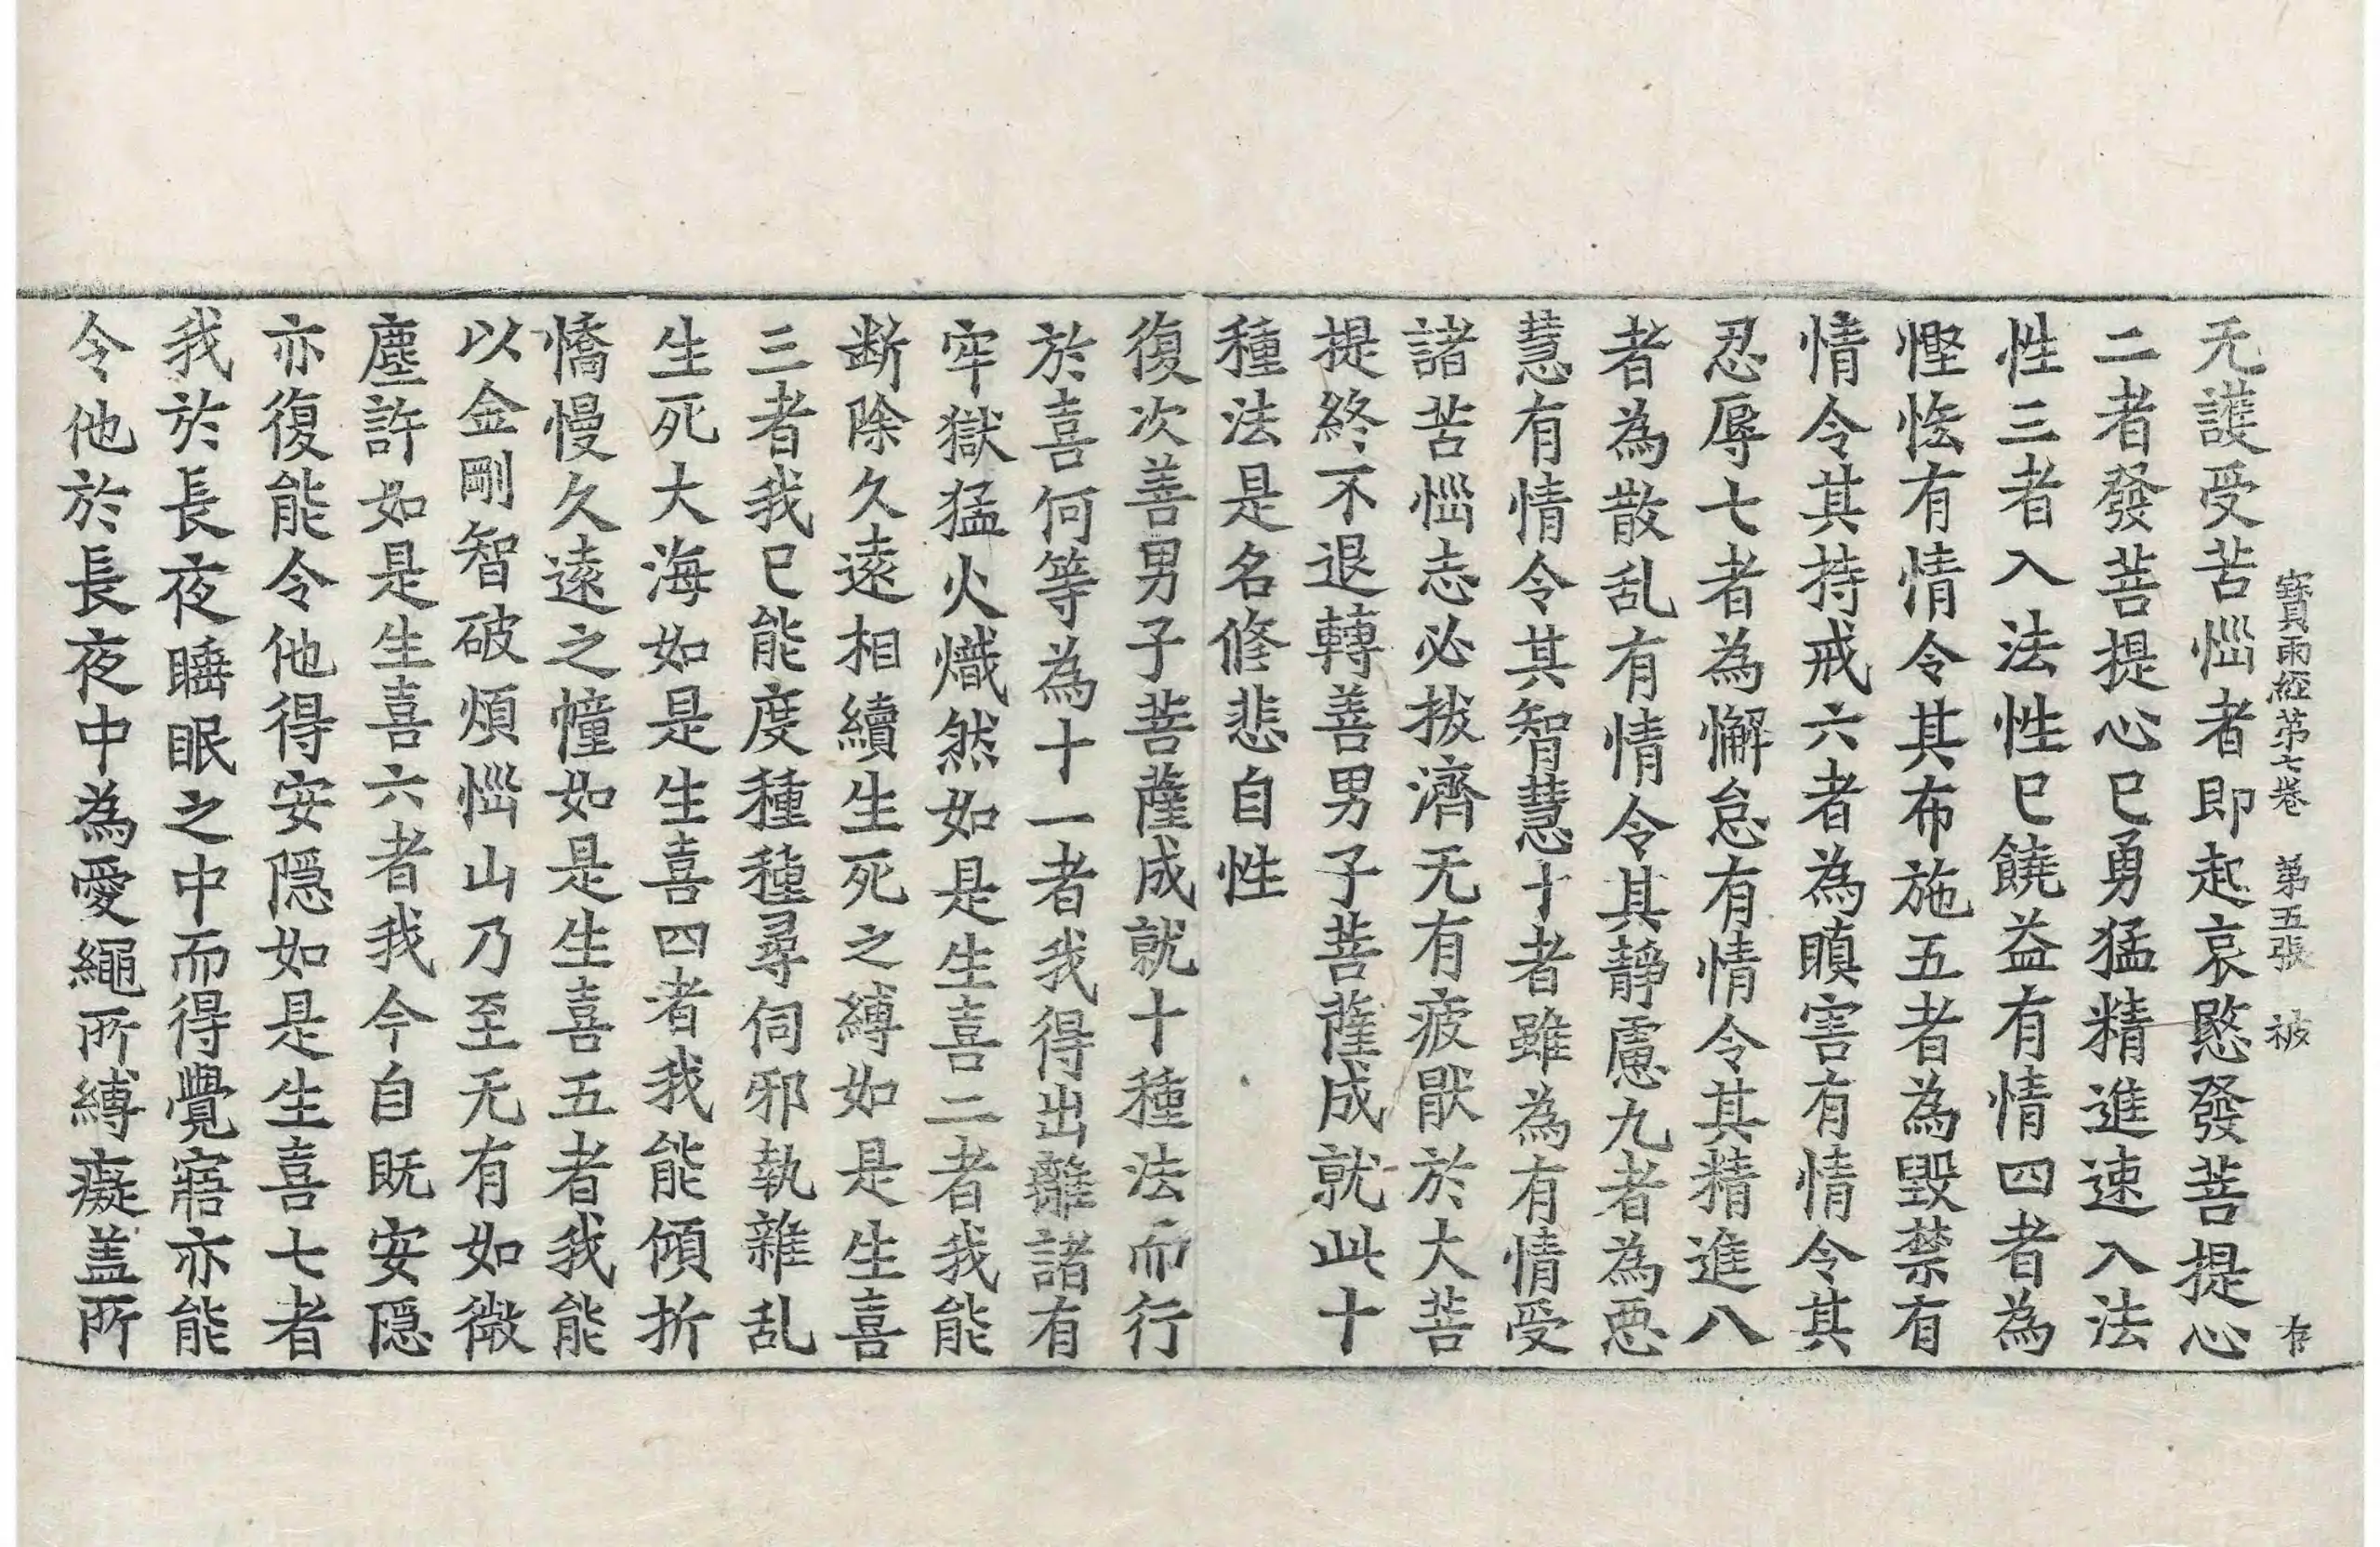 寶雨經第七卷　第五張　被　存
无護受苦惱者即起哀愍發菩提心
二者發菩提心已勇猛精進速入法
性三者入法性已饒益有情四者為
慳悋有情令其布施五者為毀禁有
情令其持戒六者為瞋害有情令其
忍辱七者為懈怠有情令其精進八
者為散乱有情令其靜慮九者為惡
慧有情令其智慧十者雖為有情受
諸苦惱志必拔濟无有疲厭於大菩
提終不退轉善男子菩薩成就此十
種法是名修悲自性
復次善男子菩薩成就十種法而行
於喜何等為十一者我得出離諸有
牢獄猛火熾然如是生喜二者我能
断除久遠相續生死之縛如是生喜
三者我已能度種種尋伺邪執雜乱
生死大海如是生喜四者我能傾折
憍慢久遠之幢如是生喜五者我能
以金剛智破煩惱山乃至无有如微
塵許如是生喜六者我今自既安隱
亦復能令他得安隱如是生喜七者
我於長夜睡眠之中而得覺寤亦能
令他於長夜中為愛繩所縛癡盖所